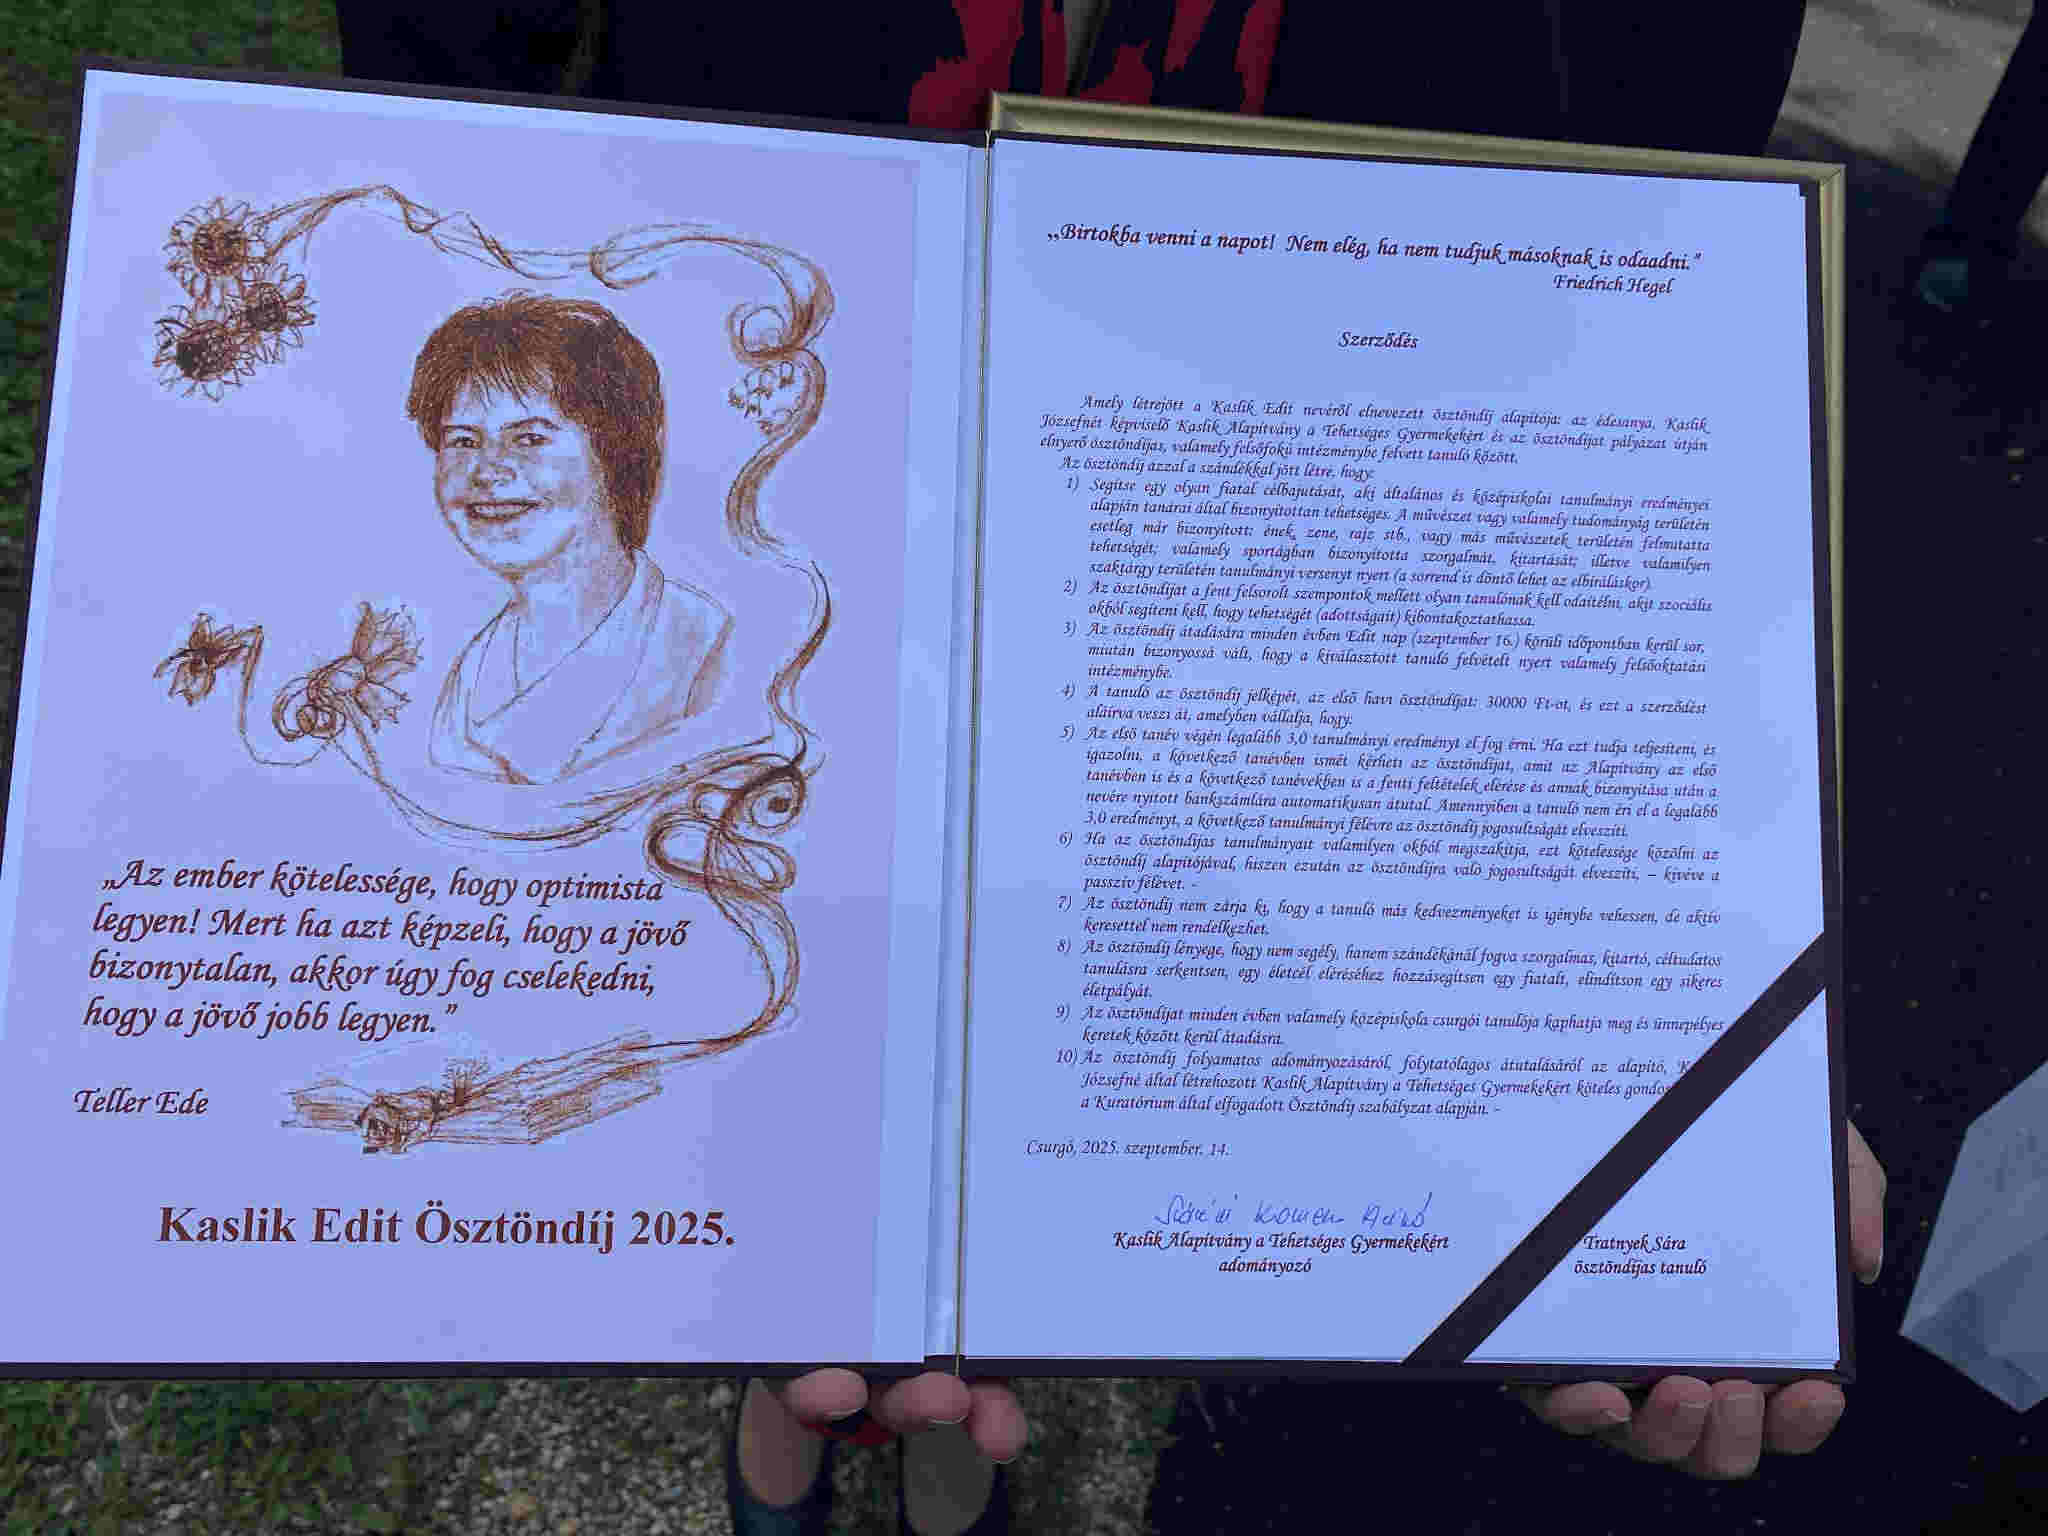 „Az ember kötelessége, hogy optimista
legyen! Mert ha azt képzeli, hogy a jövő
bizonytalan, akkor úgy fog cselekedni,
hogy a jövő jobb legyen.”
Teller Ede
Kaslik Edit Ösztöndíj 2025.
„Birtokba venni a napot! Nem elég, ha nem tudjuk másoknak is odaadni.”
Friedrich Hegel
Szerződés
Amely létrejött a Kaslik Edit nevéről elnevezett ösztöndíj alapítója: az édesanya, Kaslik
Józsefnét képviselő Kaslik Alapítvány a Tehetséges Gyermekekért és az ösztöndíjat pályázat útján
elnyerő ösztöndíjas, valamely felsőfokú intézménybe felvett tanuló között.
Az ösztöndíj azzal a szándékkal jött létre, hogy:
1) Segítse egy olyan fiatal célbajutását, aki általános és középiskolai tanulmányi eredményei
alapján tanárai által bizonyítottan tehetséges. A művészet vagy valamely tudományág területén
esetleg már bizonyított: ének, zene, rajz stb., vagy más művészetek területén felmutatta
tehetségét; valamely sportágban bizonyította szorgalmát, kitartását; illetve valamilyen
szaktárgy területén tanulmányi versenyt nyert (a sorrend is döntő lehet az elbíráláskor).
2) Az ösztöndíjat a fent felsorolt szempontok mellett olyan tanulónak kell odaítélni, akit szociális
okból segíteni kell, hogy tehetségét (adottságait) kibontakoztathassa.
3) Az ösztöndíj átadására minden évben Edit nap (szeptember 16.) körüli időpontban kerül sor,
miután bizonyossá vált, hogy a kiválasztott tanuló felvételt nyert valamely felsőoktatási
intézménybe.
4) A tanuló az ösztöndíj jelképét, az első havi ösztöndíjat: 30000 Ft-ot, és ezt a szerződést
aláírva veszi át, amelyben vállalja, hogy:
5) Az első tanév végén legalább 3,0 tanulmányi eredményt el fog érni. Ha ezt tudja teljesíteni, és
igazolni, a következő tanévben ismét kérheti az ösztöndíjat, amit az Alapítvány az első
tanévben is és a következő tanévekben is a fenti feltételek elérése és annak bizonyítása után a
nevére nyitott bankszámlára automatikusan átutal. Amennyiben a tanuló nem éri el a legalább
3,0 eredményt, a következő tanulmányi félévre az ösztöndíj jogosultságát elveszíti.
6) Ha az ösztöndíjas tanulmányait valamilyen okból megszakítja, ezt kötelessége közölni az
ösztöndíj alapítójával, hiszen ezután az ösztöndíjra való jogosultságát elveszíti, – kivéve a
passzív félévet. -
7) Az ösztöndíj nem zárja ki, hogy a tanuló más kedvezményeket is igénybe vehessen, de aktív
keresettel nem rendelkezhet.
8) Az ösztöndíj lényege, hogy nem segély, hanem szándékánál fogva szorgalmas, kitartó, céltudatos
tanulásra serkentsen, egy életcél eléréséhez hozzásegítsen egy fiatalt, elindítson egy sikeres
életpályát.
9) Az ösztöndíjat minden évben valamely középiskola csurgói tanulója kaphatja meg és ünnepélyes
keretek között kerül átadásra.
10) Az ösztöndíj folyamatos adományozásáról, folytatólagos átutalásáról az alapító,
Józsefné által létrehozott Kaslik Alapítvány a Tehetséges Gyermekekért köteles
a Kuratórium által elfogadott Ösztöndíj szabályzat alapján. -
Csurgó, 2025. szeptember. 14.
Kaslik Alapítvány a Tehetséges Gyermekekért
adományozó
Tratnyek Sára
ösztöndíjas tanuló